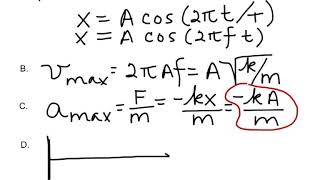 x = A cos (2πt/T)
x = A cos (2πft)
B. vmax = 2πAf = A√k/m
C. amax = F/m = -kx/m = -kA/m
D.